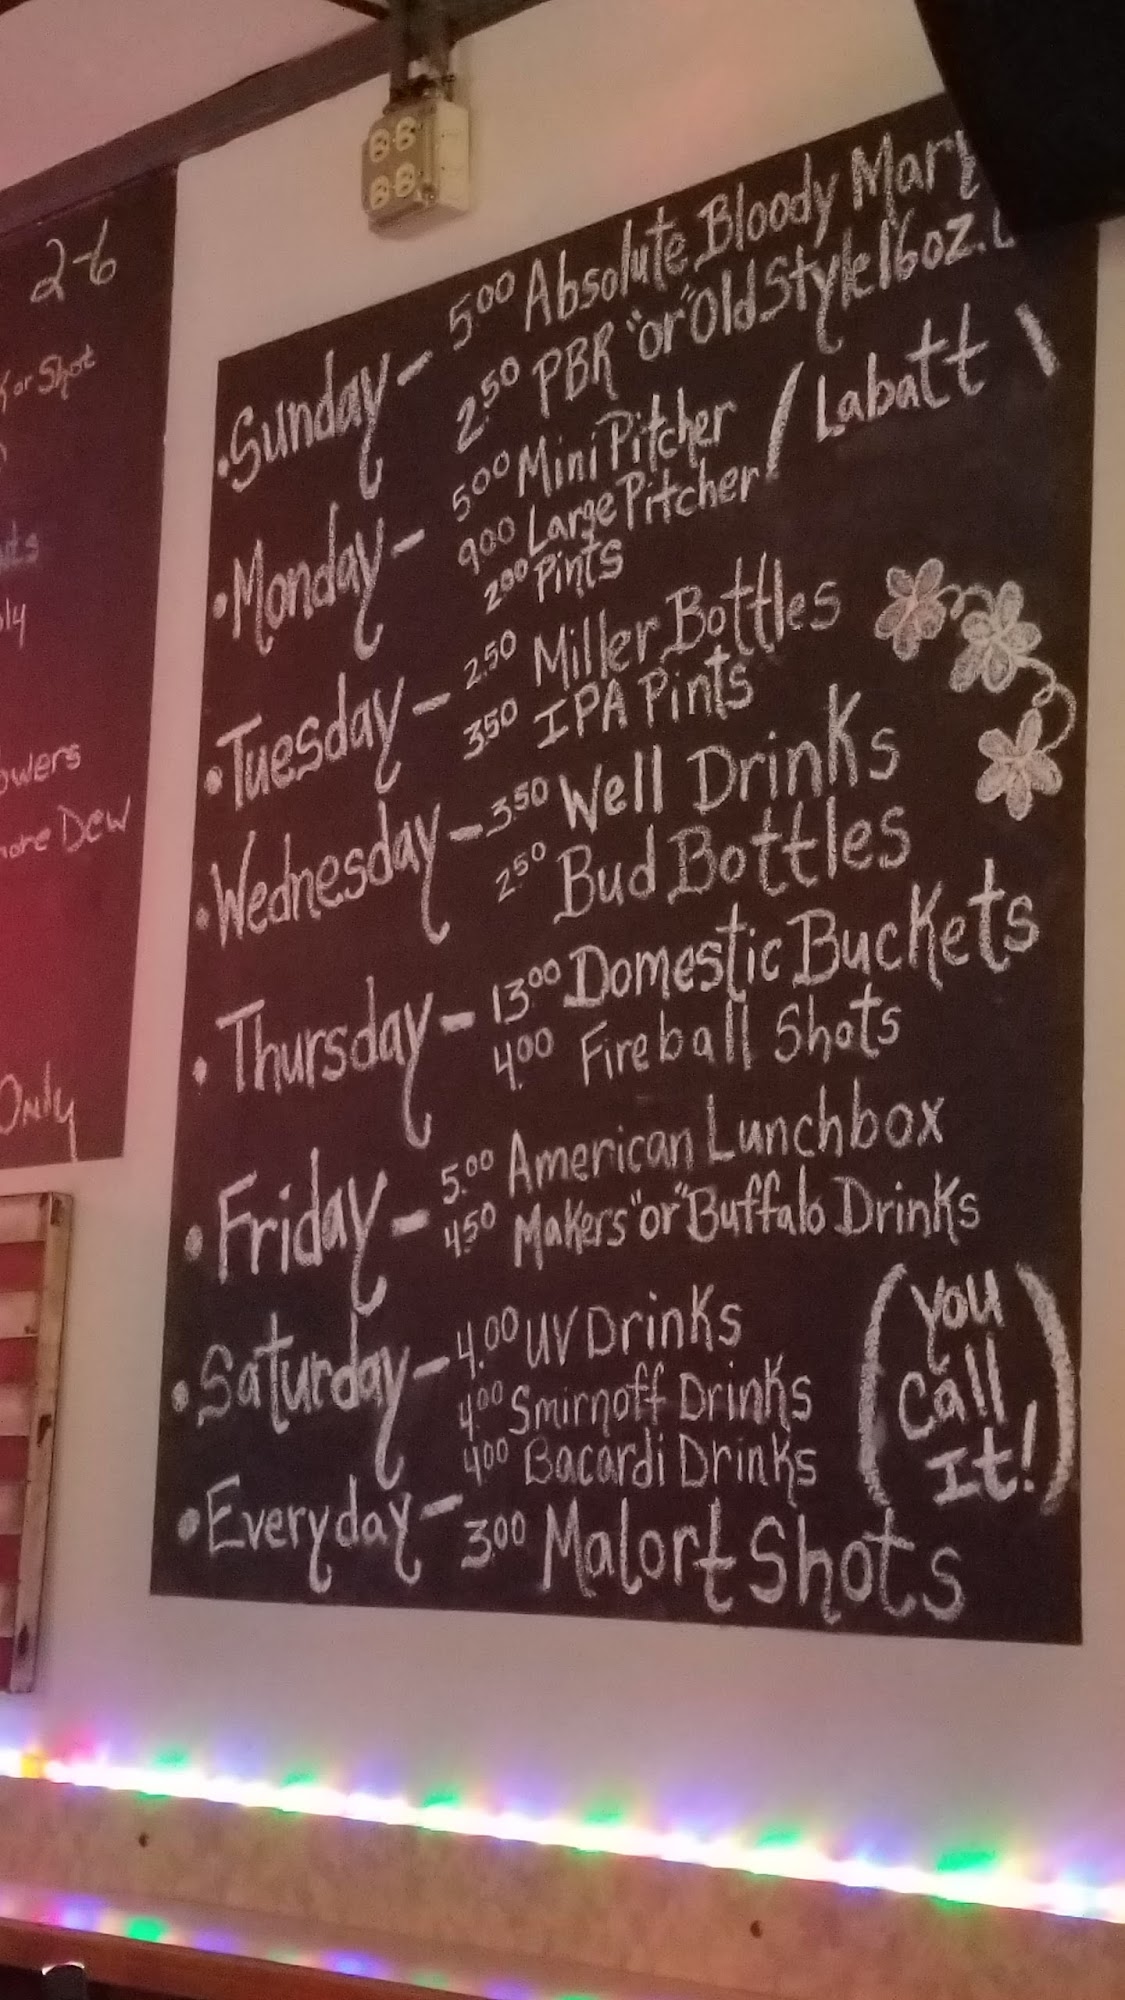 2-6
or Shot
Dew
Only
•Sunday - 5.00 Absolute Bloody Mary
2.50 PBR "or" Old Style 16oz.
•Monday - 5.00 Mini Pitcher
9.00 Large Pitcher / Labatt \
2.00 Pints
•Tuesday - 2.50 Miller Bottles
3.50 IPA Pints
•Wednesday - 3.50 Well Drinks
2.50 Bud Bottles
•Thursday - 13.00 Domestic Buckets
4.00 Fireball Shots
•Friday - 5.00 American Lunchbox
4.50 Makers "or" Buffalo Drinks
•Saturday - 4.00 UV Drinks
4.00 Smirnoff Drinks
4.00 Bacardi Drinks
(You
Call
It!)
•Everyday - 3.00 Malort Shots